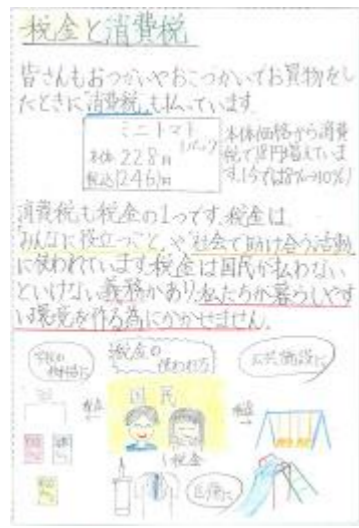 税金と消費税
皆さんもおつかいやおこづかいでお買物をし
たときに消費税も払っています
ミニトマト
1パック
本体 228円
税込(246)円
本体価格から消費
税で18円増えていま
す。(今では8%→10%)
消費税も税金の1つです。税金は
みんなに役立つこと、や社会で助け合う活動
に使われています。税金は国民が払わない
といけない義務があり、私たちが暮らしやす
い環境を作る為にかかせません。
税金の
使われ方
公共施設に
国民
税金
税金
税金
医療に